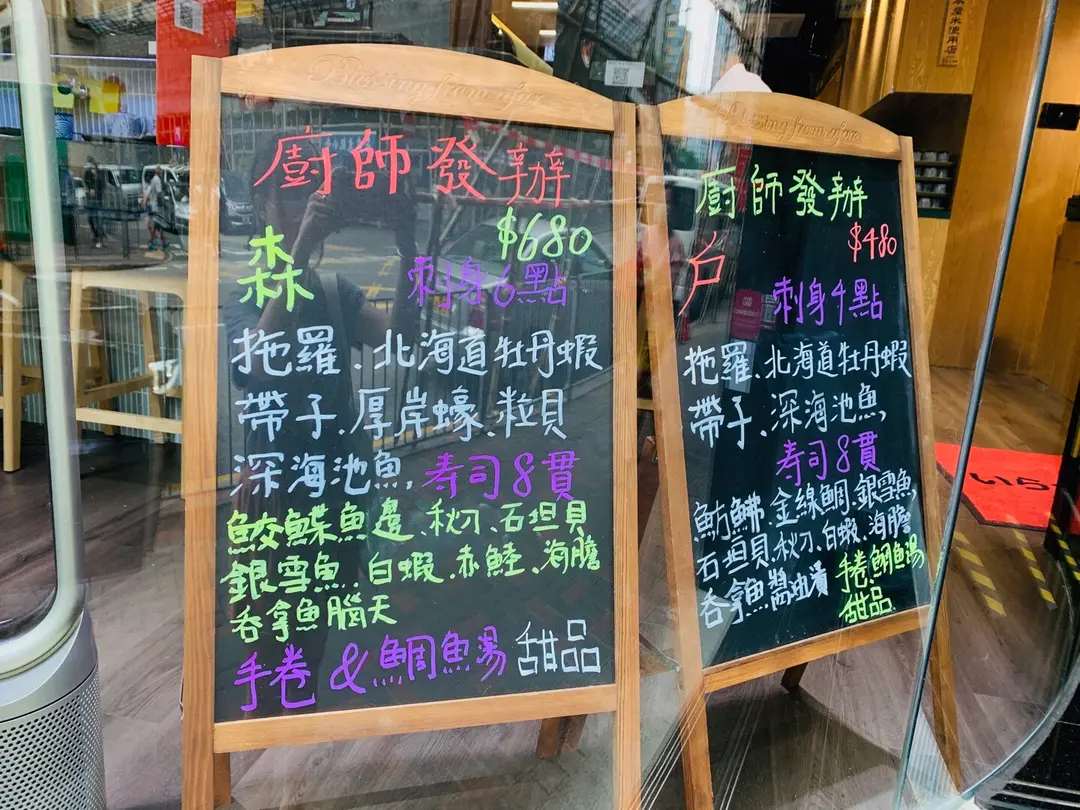 Blessing from afar
廚師發辦
$680
森
刺身6點
拖羅、北海道牡丹蝦
帶子、厚岸蠔、粒貝
深海池魚,寿司8貫
鮫鰈魚邊、秋刀、石垣貝
銀雪魚、白蝦、赤鯥、海膽
吞拿魚腦天
手卷&鯛魚湯 甜品
Blessing from afar
廚師發辦
$480
戶
刺身4點
拖羅、北海道牡丹蝦
帶子、深海池魚,
寿司8貫
魴鮄、金線鯛、銀雪魚,
石垣貝、秋刀、白蝦、海膽
吞拿魚醬油漬
手卷鯛魚湯
甜品
米使用店
いら